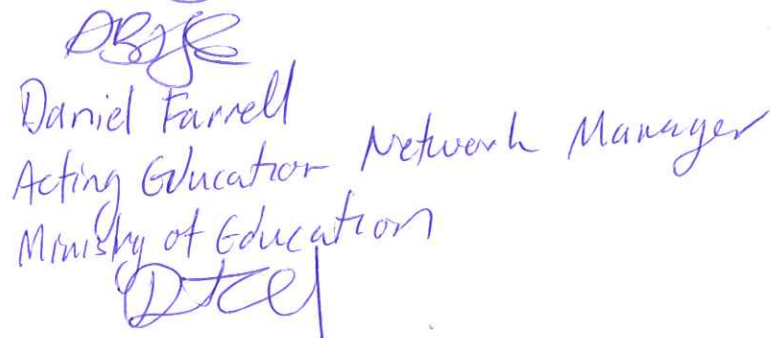 Daniel Farrell
Acting Education Network Manager
Ministry of Education